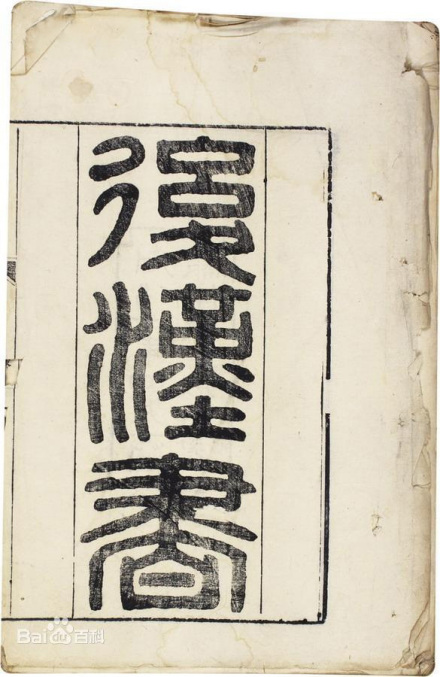 後漢書
Bai百科